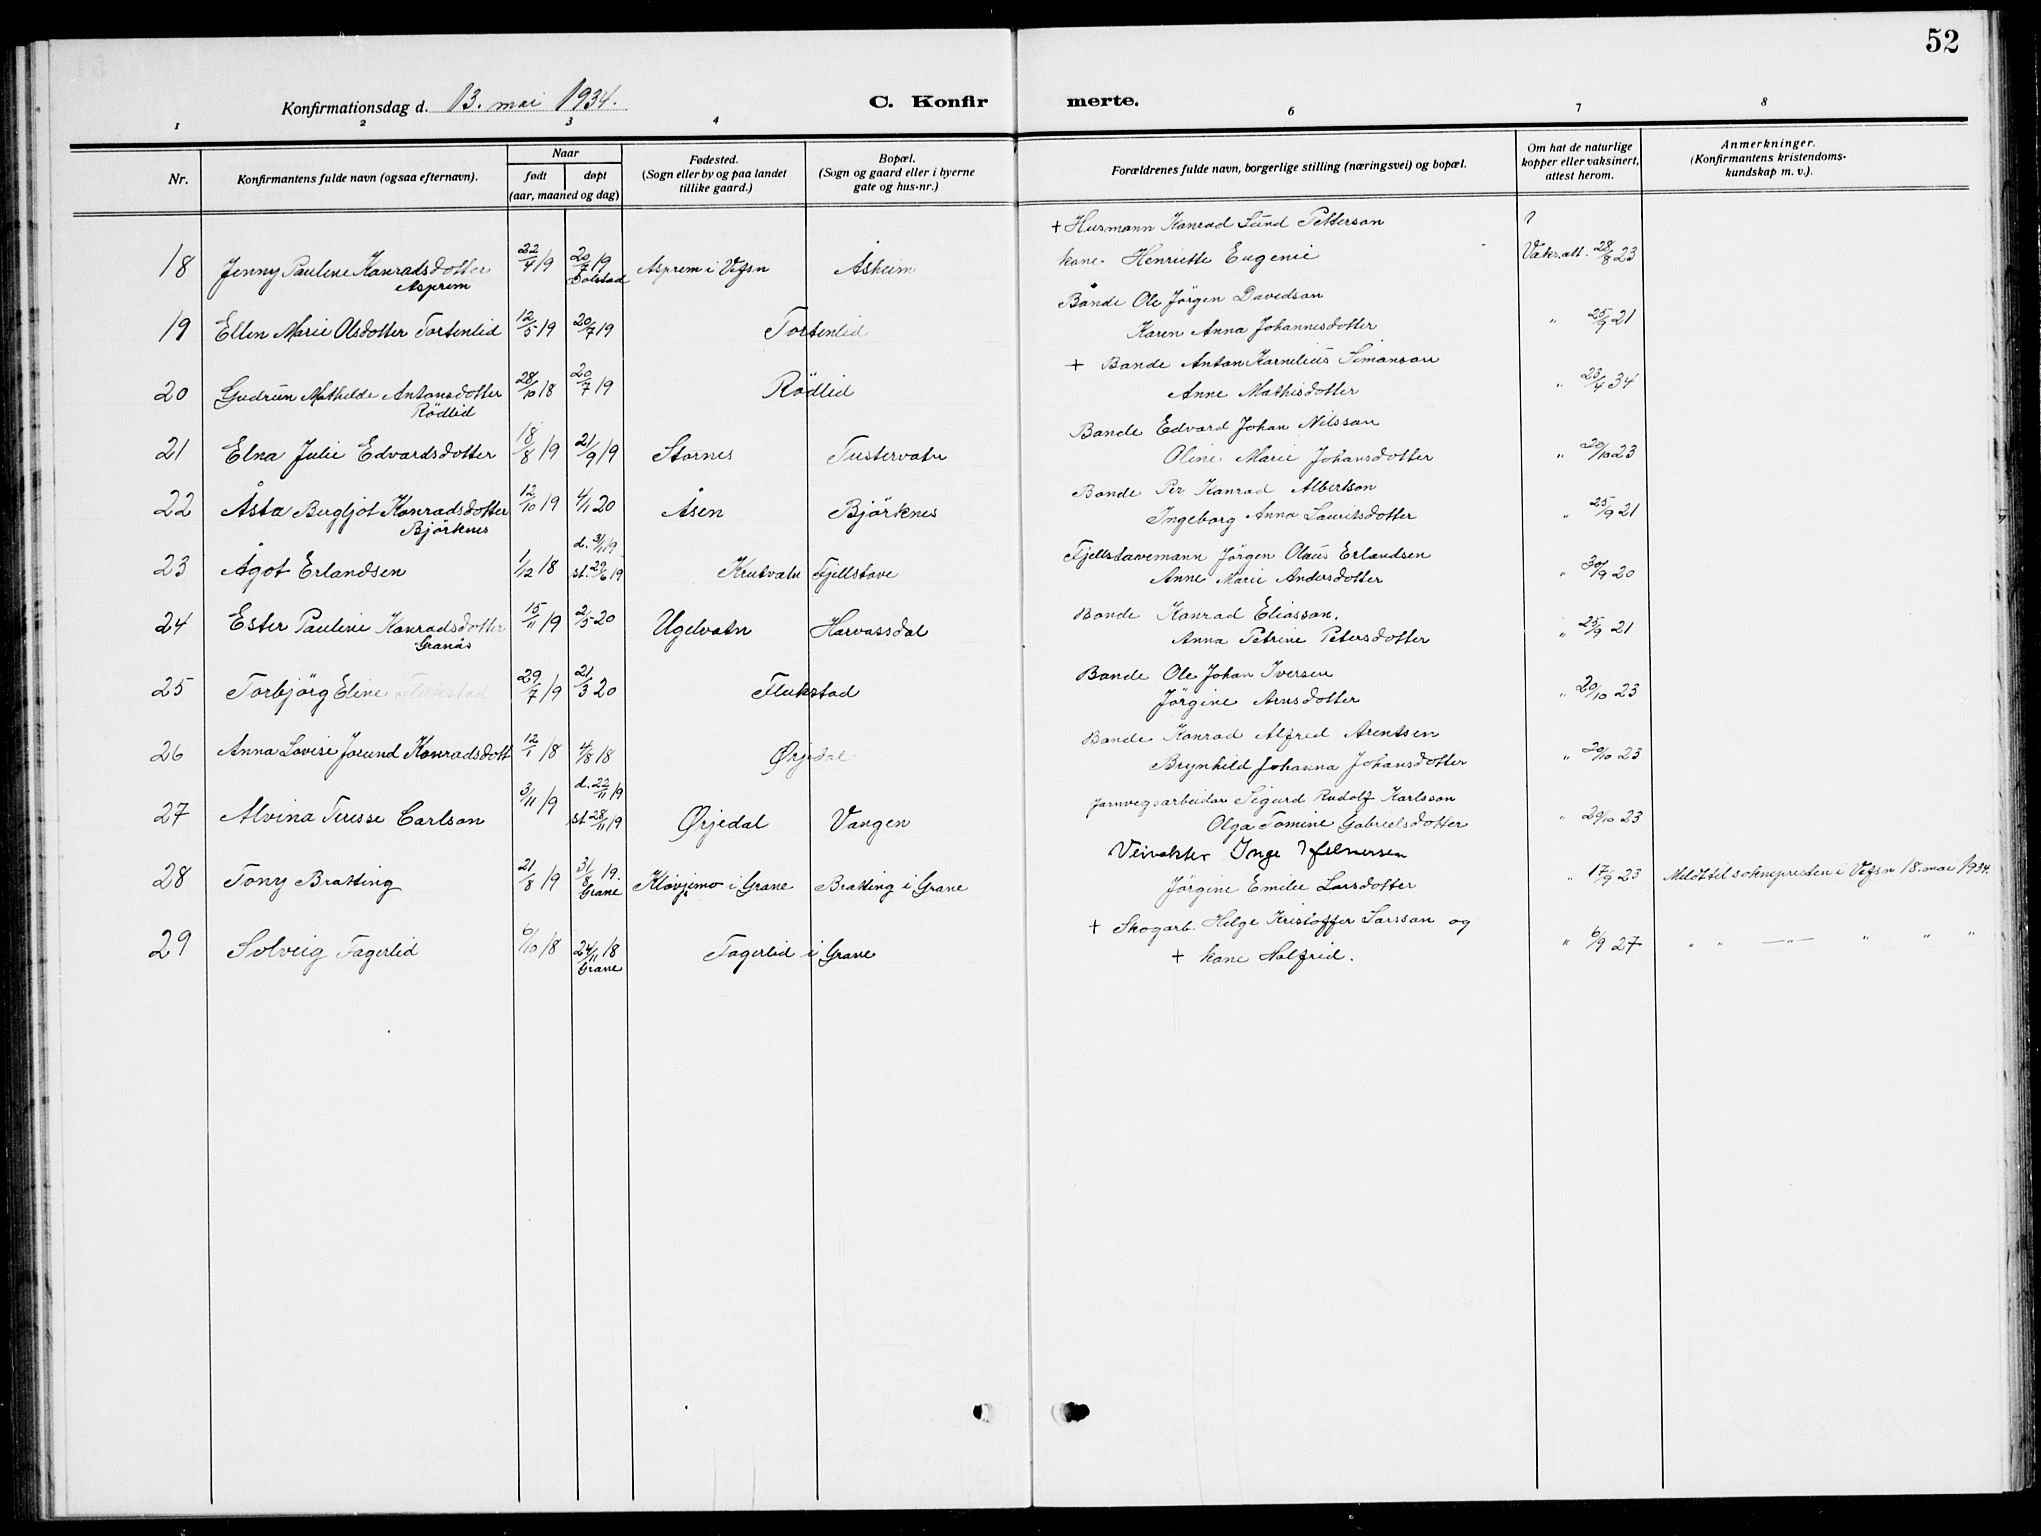 52
Konfirmationsdag d. 13. mai 1934.
C. Konfir merte.
1 2 3 4 6 7 8
Nr.
Konfirmantens fulde navn (ogsaa efternavn).
Naar
født
døpt
(aar, maaned og dag)
Fødested.
(Sogn eller by og paa landet
tillike gaard.)
Bopæl.
(Sogn og gaard eller i byerne
gate og hus-nr.)
Forældrenes fulde navn, borgerlige stilling (næringsvei) og bopæl.
Om hat de naturlige
kopper eller vaksinert,
attest herom.
Anmerkninger.
(Konfirmantens kristendoms-
kundskap m. v.).
+ Husmann Konrad Lund Petterson ?
18 Jenny Pauline Konradsdotter 22/4 19 20/7 19 Asprem i Vefsn Åsheim kone. Henriette Eugenie Vaks.att. 28/8 23
Asprem Dolstad
Bonde Ole Jörgen Davidson
19 Ellen Marie Olsdotter Tortenlid 12/5 19 20/7 19 Tortenlid Karen Anna Johannesdotter " 25/9 21
+ Bonde Anton Kornelius Simonson
20 Gudrun Mathilde Antonsdotter 28/10 18 20/7 19 Rödlid Anne Mathisdotter " 23/4 34
Rödlid
Bonde Edvard Johan Nilsson
21 Elna Julie Edvardsdotter 18/8 19 21/9 19 Stornes Tustervatn Oline Marie Johansdotter " 20/10 23
Bonde Per Konrad Albertson
22 Åsta Bergljot Konradsdotter 12/10 19 4/1 20 Åsen Björknes Ingeborg Anna Lauritsdotter " 25/9 21
Björknes
d. 3/1 19 Fjellstavemann Jörgen Olaus Erlandsen
23 Ågot Erlandsen 1/12 18 st. 29/6 19 Krutvatn Fjellstave Anne Marie Andersdotter " 30/9 20
Bonde Konrad Eliasson.
24 Ester Pauline Konradsdotter 15/11 19 2/5 20 Ugelvatn Harvassdal Anna Petrine Petersdotter " 25/9 21
Granås
Bonde Ole Johan Iversen
25 Torbjörg Eline Flukstad 29/7 19 21/3 20 Flukstad Jörgine Arnsdotter " 20/10 23
Bonde Konrad Alfred Arentsen
26 Anna Lovise Jorund Konradsdott 12/1 18 4/8 18 Ørjedal Brynhild Johanna Johansdotter " 20/10 23
d. 22/11 19 Jarnvegsarbeidar Sigurd Rudolf Karlsson
27 Alvina Teresse Carlson 3/11 19 st 28/11 19 Ørjedal Vangen Olga Tomine Gabrielsdotter " 20/10 23
Veivokter Inge Hjelmersen
28 Tony Bratting 21/8 19 31/8 19. Kløvjimo i Grane Bratting i Grane Jörgine Emilie Larsdotter " 17/9 23 Meldt til soknepresten i Vefsn 18. mai 1934.
Grane
+ Skogarb. Helge Kristoffer Larsson og
29 Solveig Fagerlid 6/10 18 24/11 18 Fagerlid i Grane + kone Halfrid. " 6/9 27 " " —"— " " "
Grane